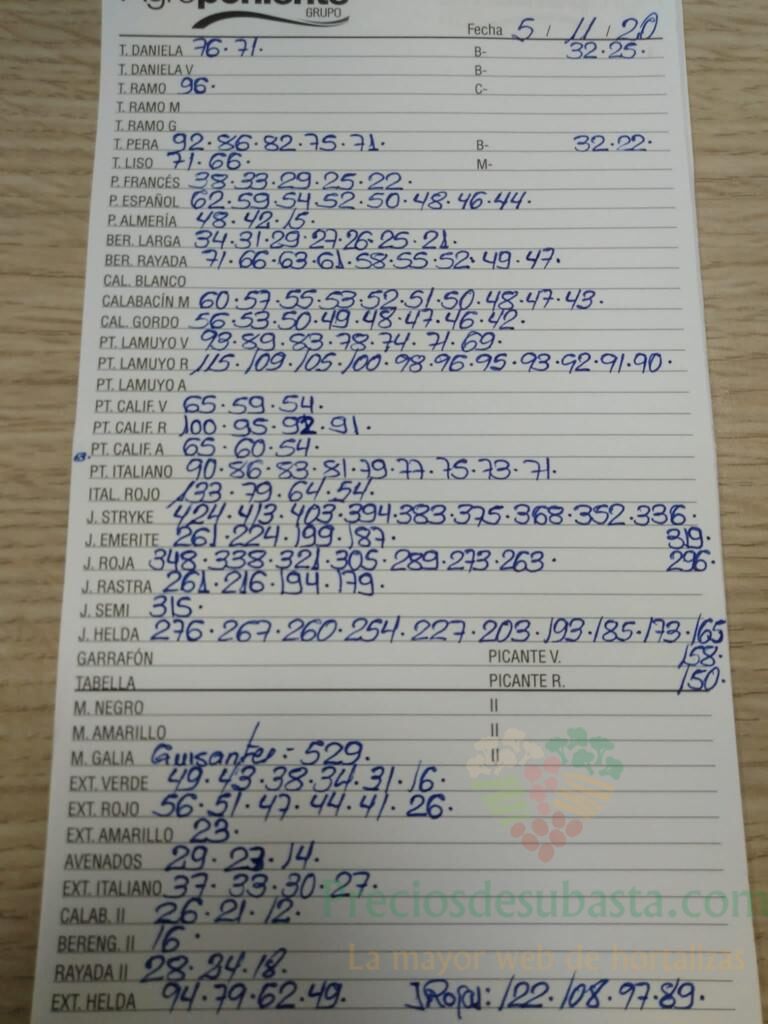 Agroponiente
GRUPO
Fecha 5 / 11 / 20
T. DANIELA 76·71· B- 32·25·
T. DANIELA V B-
T. RAMO 96· C-
T. RAMO M
T. RAMO G
T. PERA 92·86·82·75·71· B- 32·22·
T. LISO 71·66· M-
P. FRANCÉS 38·33·29·25·22·
P. ESPAÑOL 62·59·54·52·50·48·46·44·
P. ALMERÍA 48·42·15·
BER. LARGA 34·31·29·27·26·25·21·
BER. RAYADA 71·66·63·61·58·55·52·49·47·
CAL. BLANCO
CALABACÍN M 60·57·55·53·52·51·50·48·47·43·
CAL. GORDO 56·53·50·49·48·47·46·42·
PT. LAMUYO V 93·89·83·78·74·71·69·
PT. LAMUYO R 115·109·105·100·98·96·95·93·92·91·90·
PT. LAMUYO A
PT. CALIF. V 65·59·54·
PT. CALIF. R 100·95·92·91·
PT. CALIF. A 65·60·54·
PT. ITALIANO 90·86·83·81·79·77·75·73·71·
ITAL. ROJO 133·79·64·54·
J. STRYKE 424·413·403·394·383·375·368·352·336·
J. EMERITE 261·224·199·187· 319·
J. ROJA 348·338·321·305·289·273·263· 296·
J. RASTRA 261·216·194·179·
J. SEMI 315·
J. HELDA 276·267·260·254·227·203·193·185·173·165
GARRAFÓN PICANTE V. 158·
TABELLA PICANTE R. 150·
M. NEGRO II
M. AMARILLO II
M. GALIA Guisantes: 529. II
EXT. VERDE 49·43·38·34·31·16·
EXT. ROJO 56·51·47·44·41·26·
EXT. AMARILLO 23·
AVENADOS 29·23·14·
EXT. ITALIANO 37·33·30·27·
Preciosdesubasta.com
CALAB. II 26·21·12·
BERENG. II 16·
La mayor web de hortalizas
RAYADA II 28·24·18·
EXT. HELDA 94·79·62·49· J Roja: 122·108·97·89·